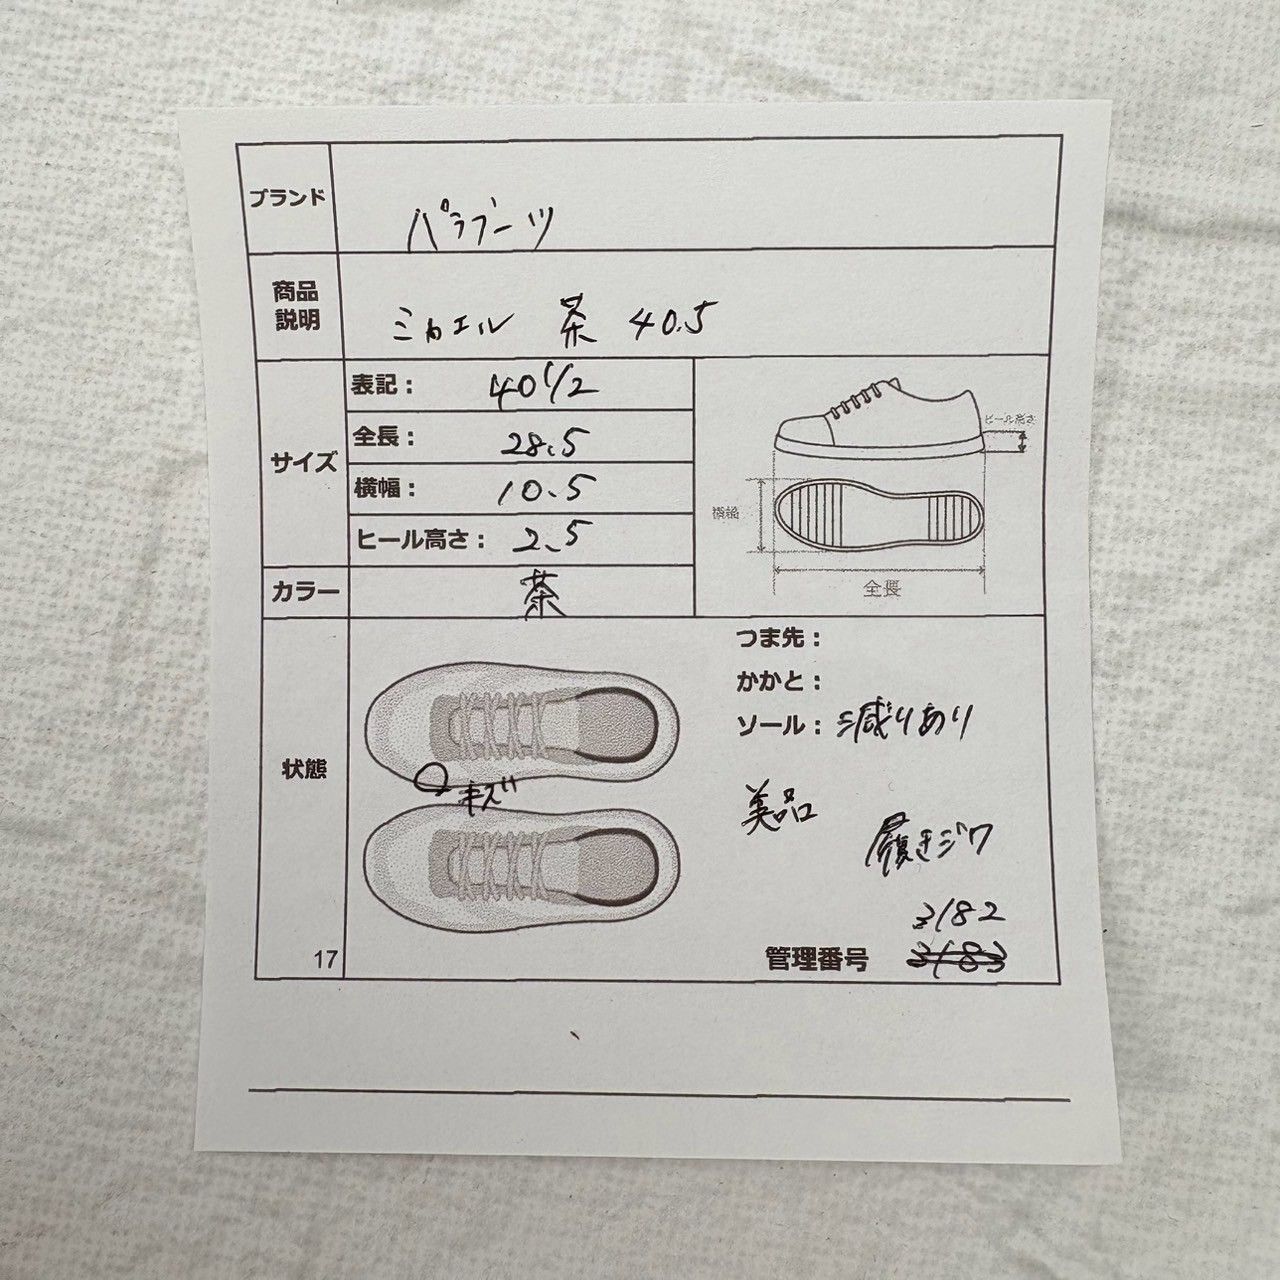 ブランド
パラブーツ
商品
説明
ミカエル 茶 40.5
サイズ
表記： 40 1/2
全長： 28.5
横幅： 10.5
ヒール高さ： 2.5
ヒール高さ
横幅
全長
カラー
茶
状態
つま先：
かかと：
ソール： 減りあり
キズ
美品
履きジワ
3182
管理番号 3183
17